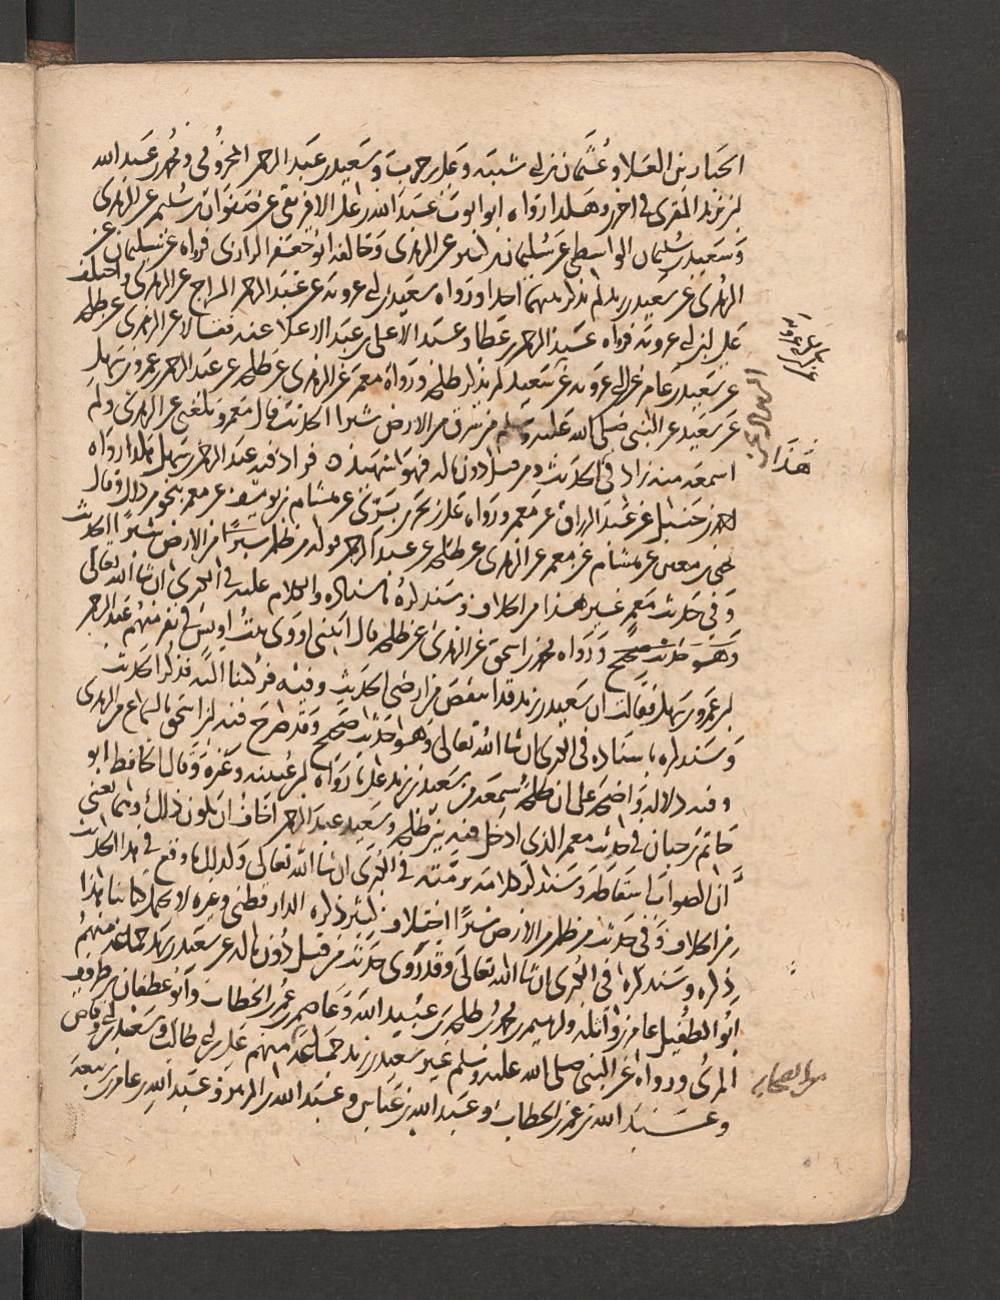 الجبار بن العلا وعثمان بن ابي شيبه وعلي بن حرب وسعيد بن عبد الرحمن المخزومي ومحمد بن عبد الله
بن يزيد المقري في اخرين وهكذا رواه ابو ايوب عبد الله بن علي الافريقي عن صفوان بن سليم عن الزهري
وسعيد بن سليمان الواسطي عن سليمان بن كثير عن الزهري وخالفه ابو جعفر الرازي فرواه عن سليمان عن
الزهري عن سعيد بن زيد لم يذكر بينهما احدا ورواه سعيد بن ابي عروبه عن عبد الرحمن السراج عن الزهري واختلف
علي ابن ابي عروبه فرواه عبد الرحمن عطا وعبد الاعلى بن عبد الاعلا عنه فقالا عن الزهري عن طلحه
عن سعيد بن عامر عن ابي عروبه عن سعيد لم يذكر طلحه ورواه معمر عن الزهري عن طلحه عن عبد الرحمن بن عمرو بن سهل
عن سعيد عن النبي صلى الله عليه وسلم من سرق من الارض شبرا الحديث قال معمر وبلغني عن الزهري ولم
اسمعه منه زاد في الحديث ومن قتل دون ماله فهو شهيد ه فزاد فيه عبد الرحمن بن سهل هكذا رواه
احمد بن حنبل عن عبد الرزاق عن معمر ورواه علي بن بحر بن بري عن هشام بن يوسف عن معمر بنحو ذلك وقال
يحيى بن معين عن هشام عن معمر عن الزهري عن طلحه عن عبد الرحمن قوله من ظلم شبرا من الارض شبرا الحديث
وفي حديث معمر غير هذا من الخلاف وسنذكره باسناده والكلام عليه في الكبرى ان شا الله تعالى
وهو حديث صحيح ورواه محمد بن اسحق عن الزهري عن طلحه قال اتتني اروى بنت اويس في نفر منهم عبد الرحمن
بن عمرو بن سهل فقالت ان سعيد بن زيد قد انتقص من ارضي الحديث وفيه فركبنا اليه فذكر الحديث
وسنذكره باسناده في الكبرى ان شا الله تعالى وهو حديث صحيح وقد صرح فيه ابن اسحق بالسماع من الزهري
وفيه دلاله واضحه على ان طلحه سمعه من سعيد بن زيد على ما رواه ابن عيينه وغيره وقال الحافظ ابو
حاتم بن حبان في حديث معمر الذي ادخل فيه بين طلحه وسعيد عبد الرحمن اخاف ان يكون ذلك وهما يعني
ان الصواب اسقاطه وسنذكر كلامه برمته في الكبرى ان شا الله تعالى وكذلك ما وقع في هذا الحديث
من الخلاف وفي حديث من ظلم من الارض شبرا اختلاف كثير ذكره الدارقطني وغيره لا يحتمل كتابنا هذا
ذكره وسنذكره في الكبرى ان شا الله تعالى وقد روى حديث من قتل دون ماله عن سعيد بن زيد جماعه منهم
ابو الطفيل عامر بن واثله وابرهيم بن محمد بن طلحه بن عبيد الله وعاصم بن عمر بن الخطاب وابو غطفان بن طريف
المري ورواه عن النبي صلى الله عليه وسلم غير سعيد بن زيد جماعه منهم علي بن ابي طالب وسعد بن ابي وقاص
وعبد الله بن عمر بن الخطاب وعبد الله بن عباس وعبد الله بن الزبير وعبد الله بن عامر بن ربيعه
هذا
من الصحابه